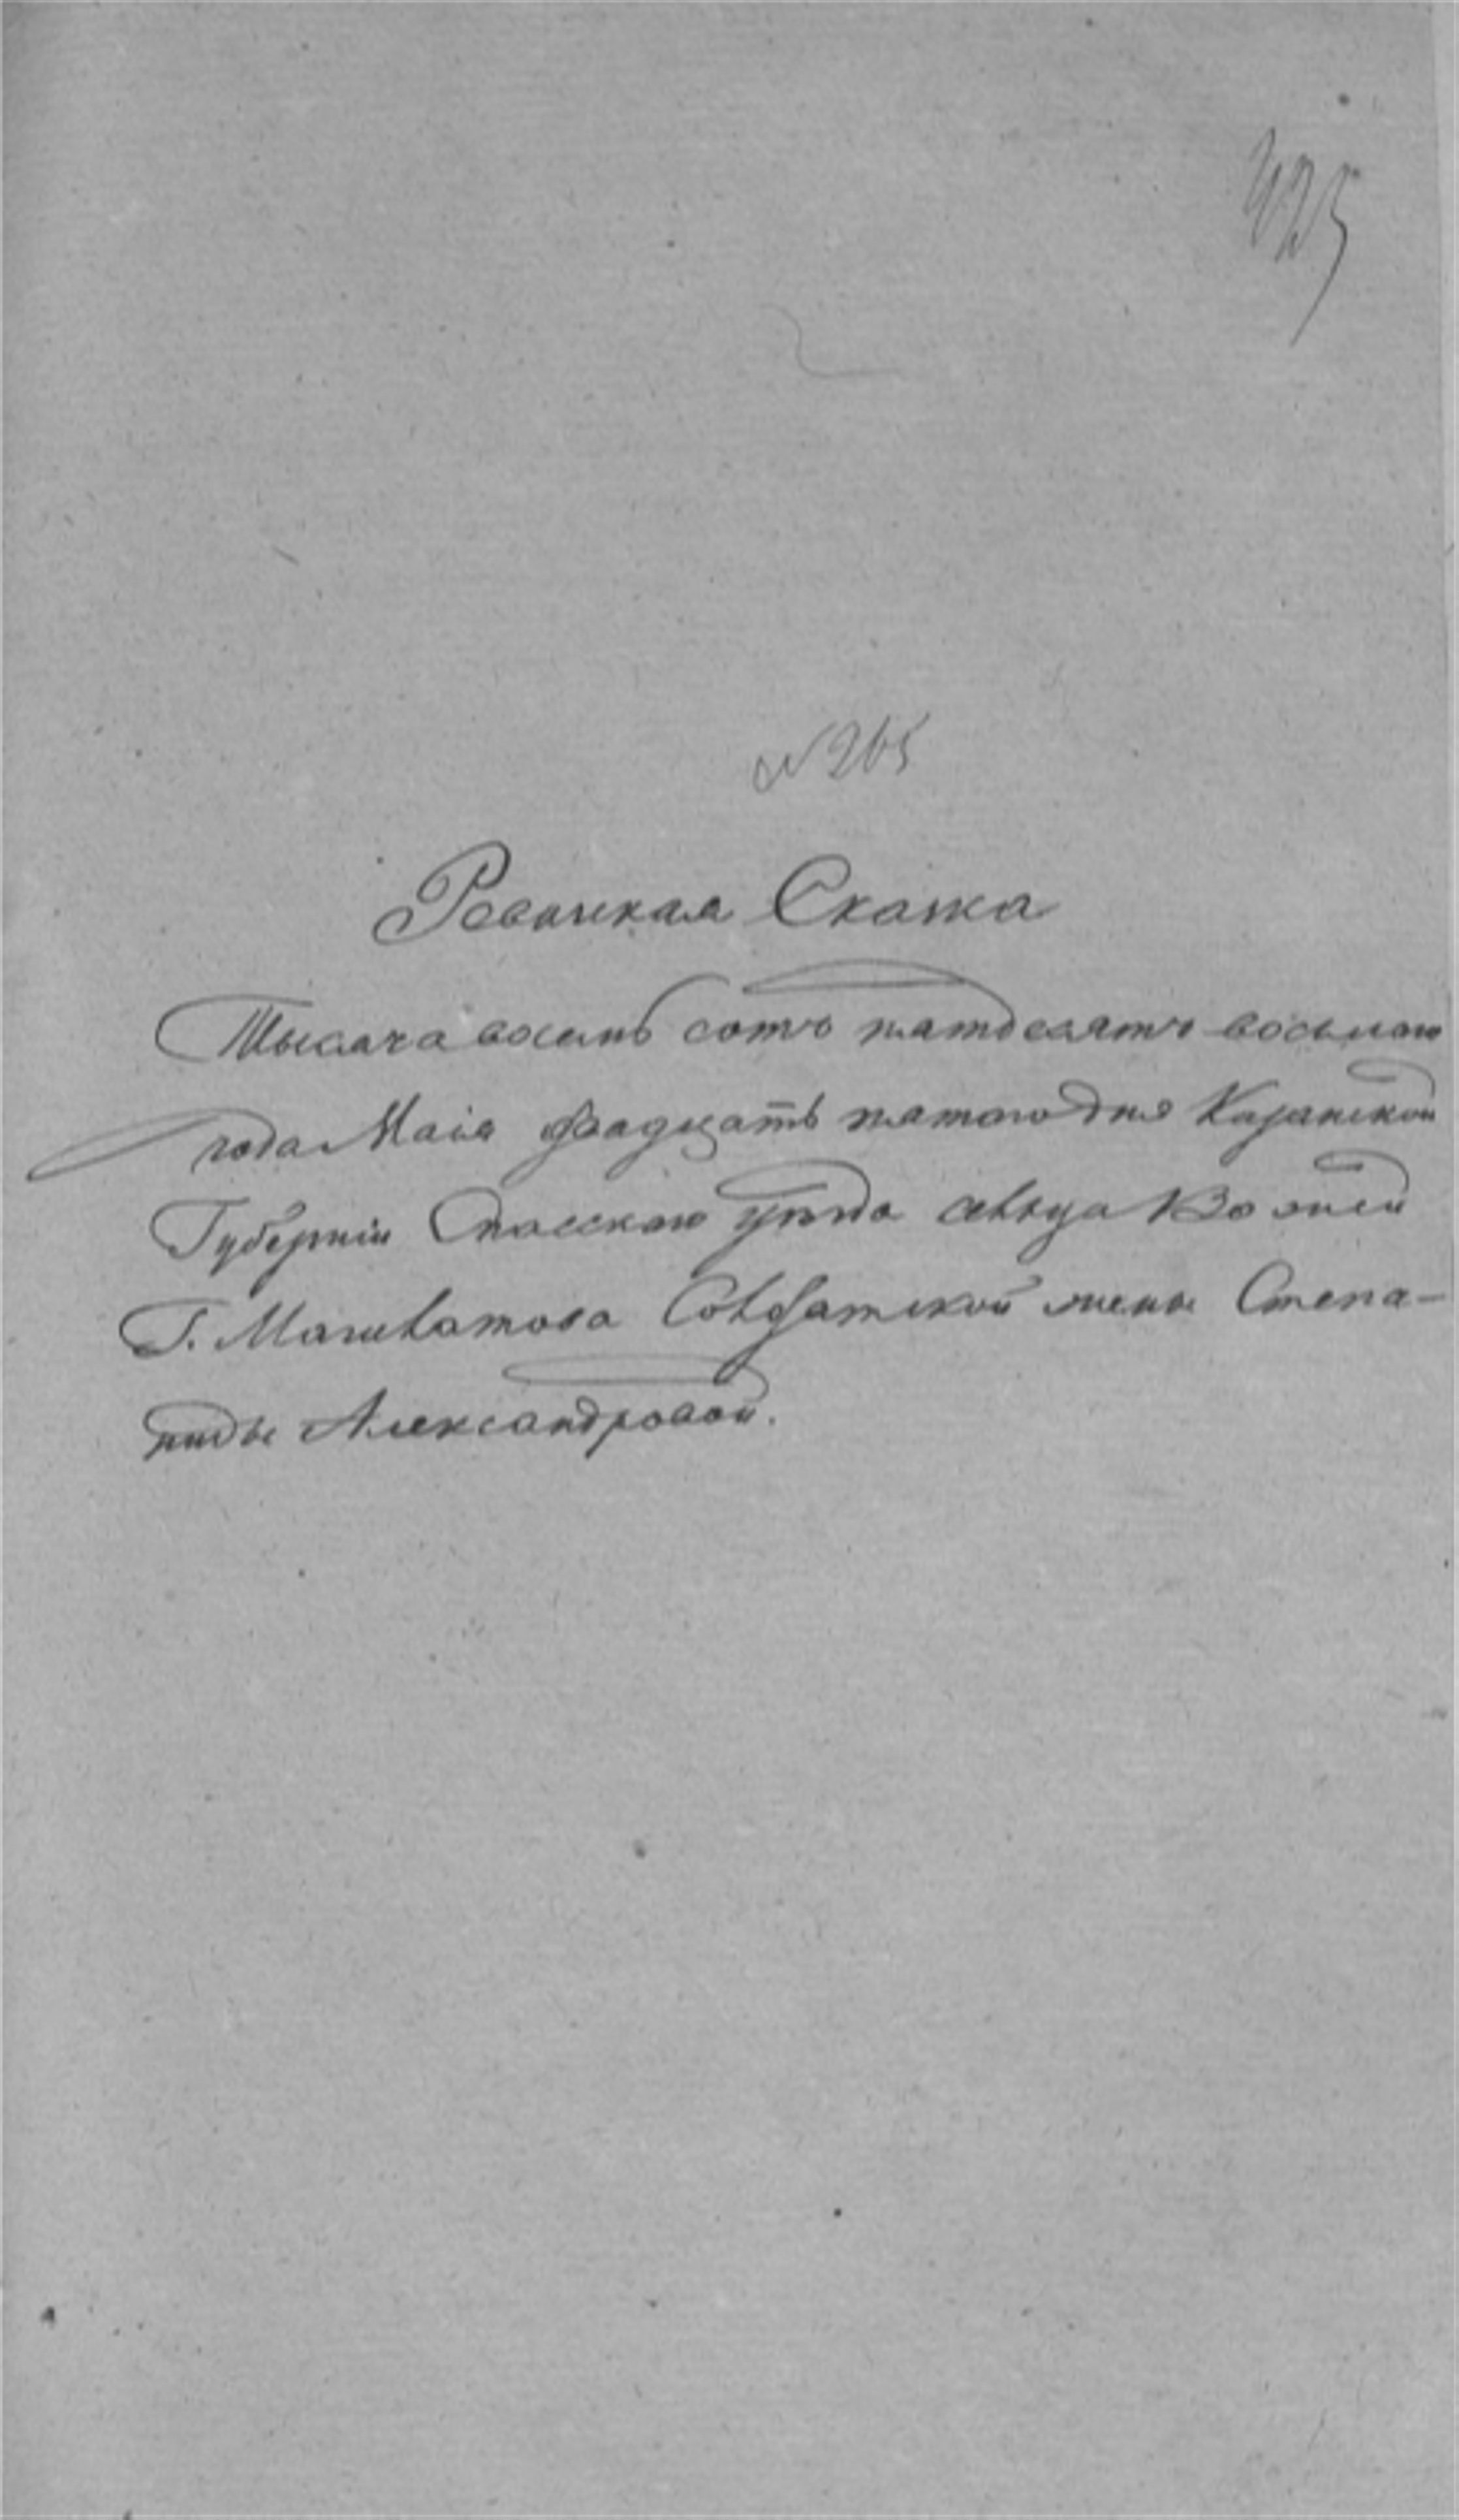 425
№ 265
Ревизская Сказка
Тысяча восемь сотъ пятдесятъ восьмаго
года Маія двадцать пятаго дня Казанской
Губерніи Спасскаго уезда сельца
Г. Солдатской жены Степа-
ниды Александровой.